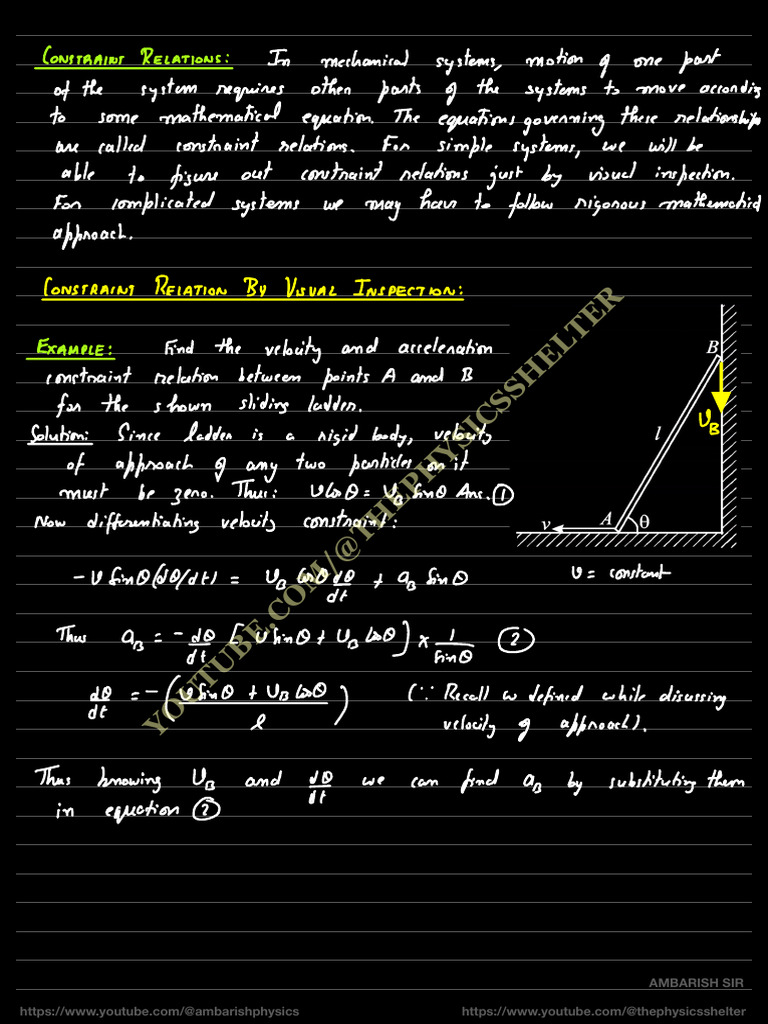 CONSTRAINT RELATIONS: In mechanical systems, motion of one part
of the system requires other parts of the systems to move according
to some mathematical equation. The equations governing these relationships
are called constraint relations. For simple systems, we will be
able to figure out constraint relations just by visual inspection.
For complicated systems we may have to follow rigorous mathematical
approach.
CONSTRAINT RELATION BY VISUAL INSPECTION:
EXAMPLE: Find the velocity and acceleration
constraint relation between points A and B
for the shown sliding ladder.
Solution: Since ladder is a rigid body, velocity
of approach of any two particles on it
must be zero. Thus: v cosθ = v_B sinθ Ans. ①
Now differentiating velocity constraint:
-v sinθ (dθ/dt) = v_B cosθ dθ/dt + a_B sinθ
Thus a_B = -dθ/dt [v sinθ + v_B cosθ] × 1/sinθ ②
dθ/dt = -(v sinθ + v_B cosθ / l) (∵ Recall ω defined while discussing
velocity of approach).
Thus knowing v_B and dθ/dt we can find a_B by substituting them
in equation ②
B
v_B
l
v
A
θ
v = constant
YOUTUBE.COM/@THEPHYSICSSHELTER
AMBARISH SIR
https://www.youtube.com/@ambarishphysics
https://www.youtube.com/@thephysicsshelter